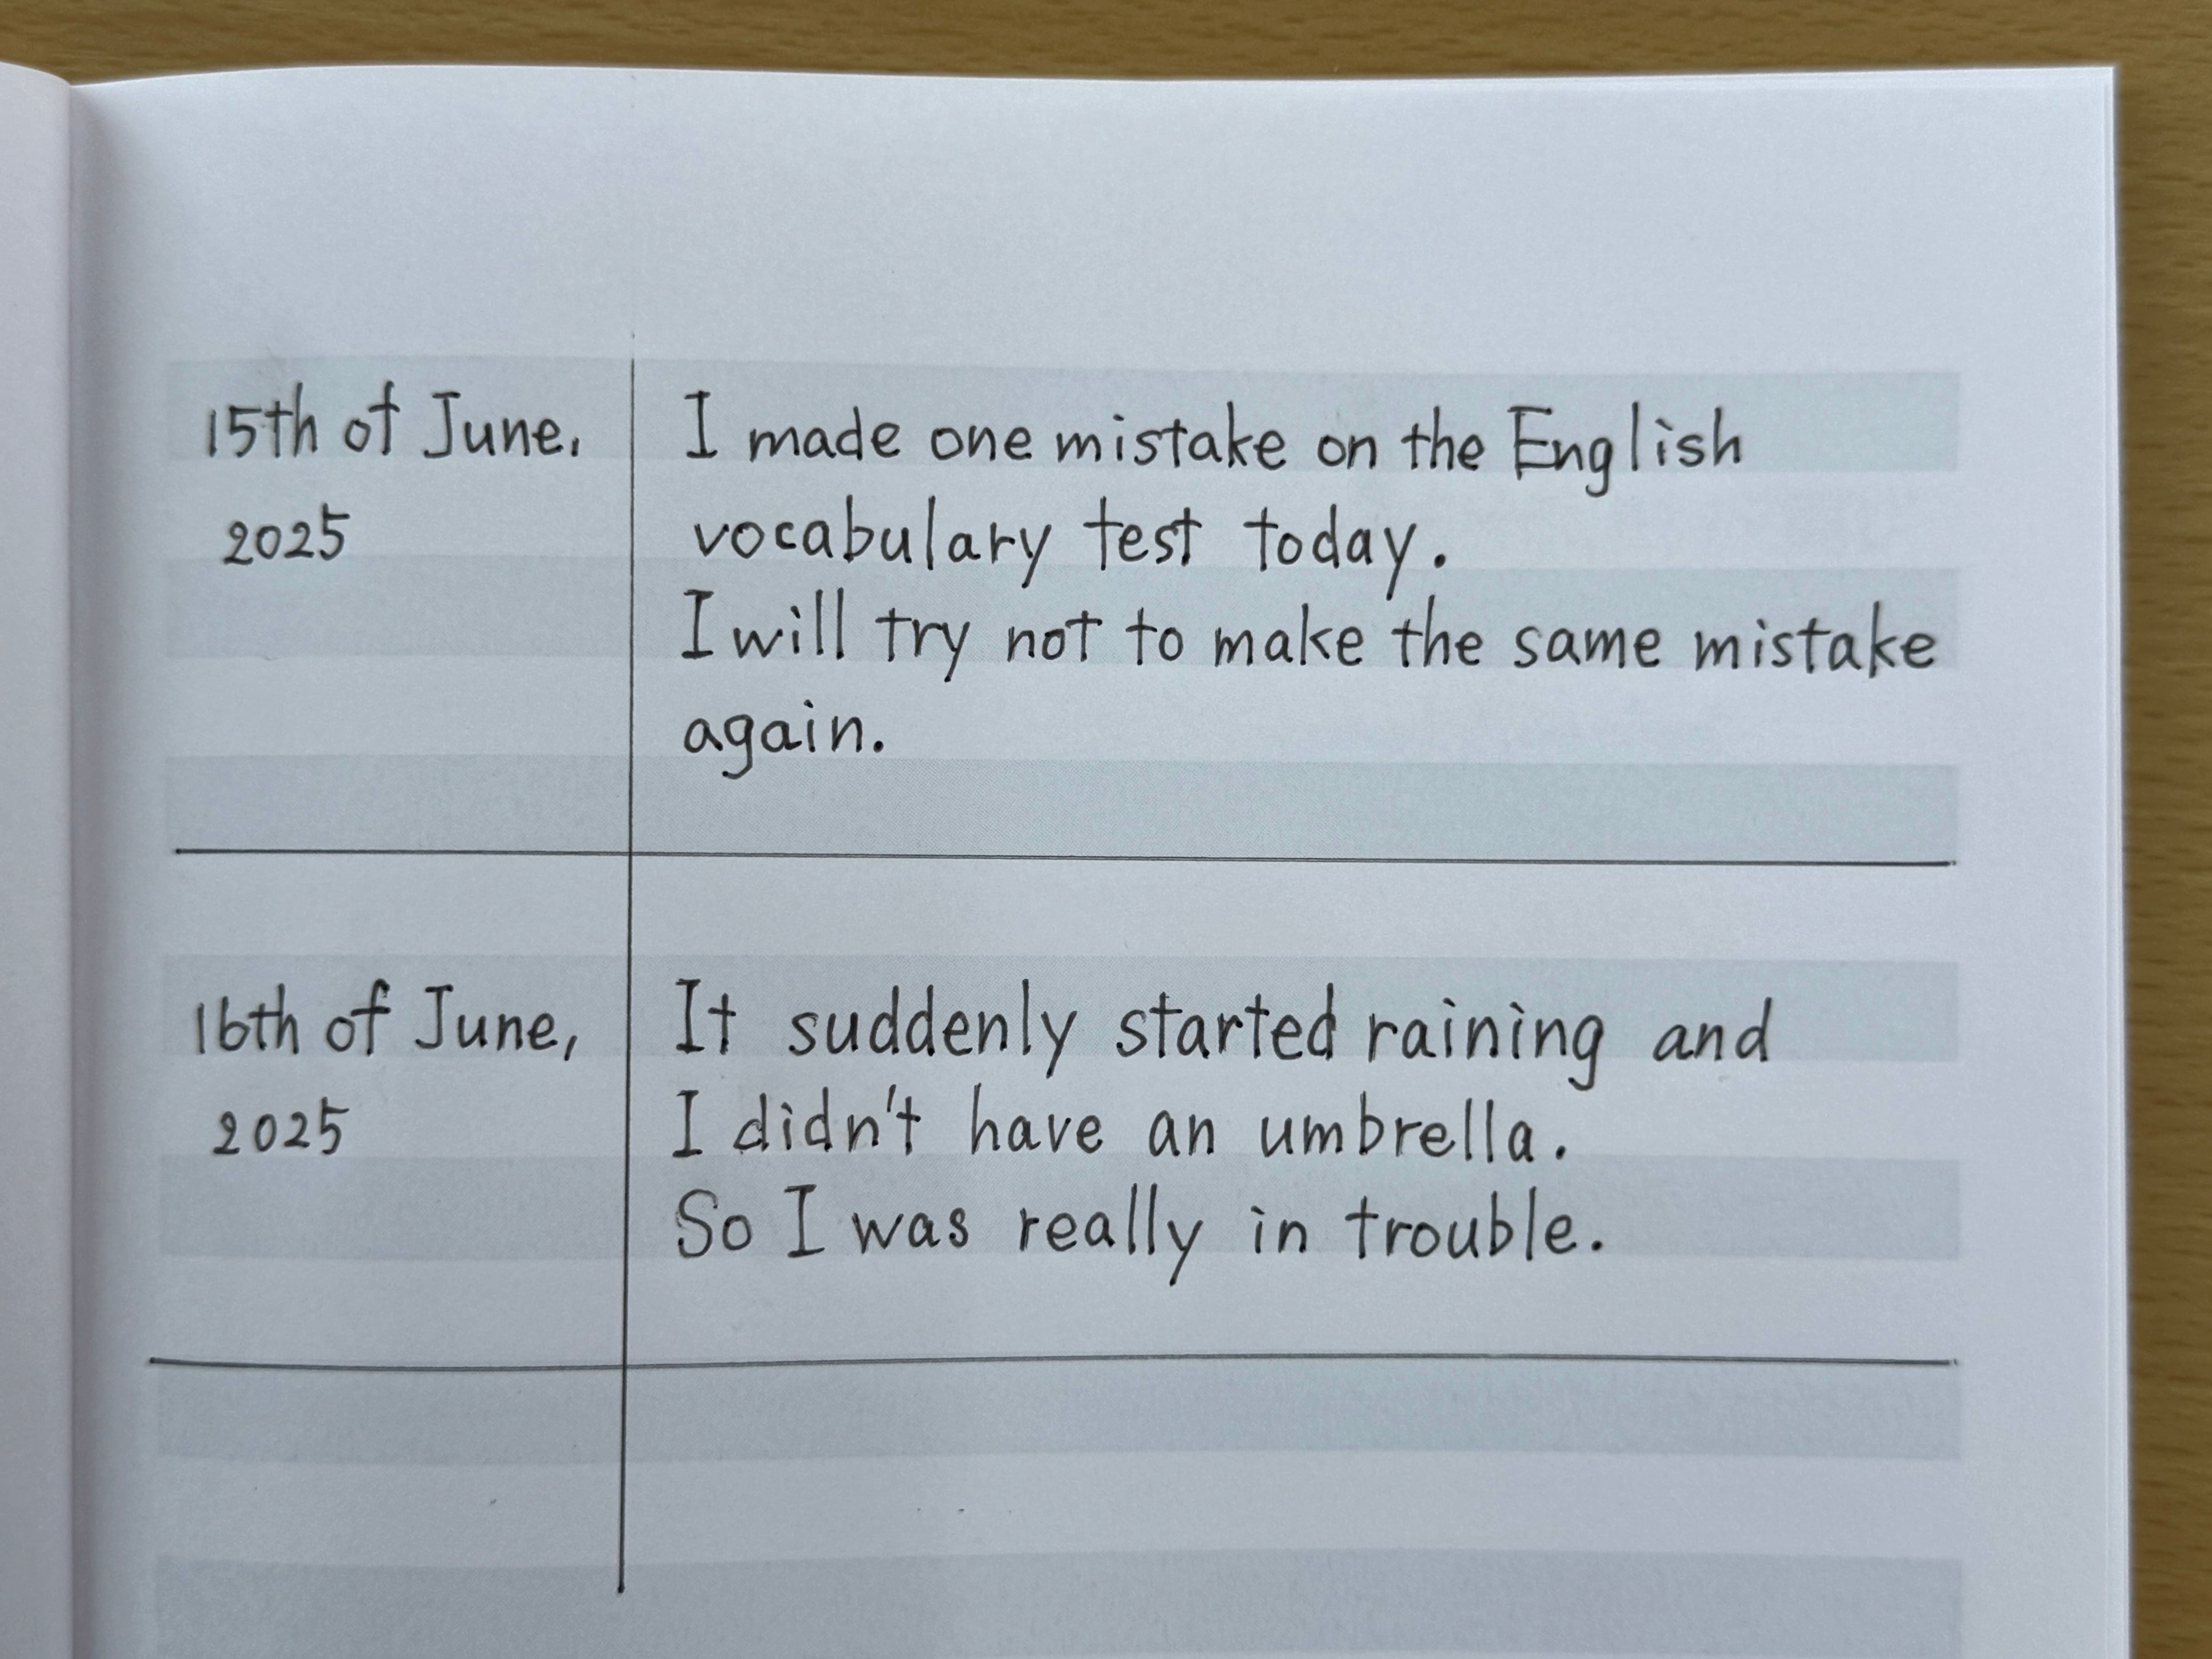 15th of June.
2025
I made one mistake on the English
vocabulary test today.
I will try not to make the same mistake
again.
16th of June,
2025
It suddenly started raining and
I didn't have an umbrella.
So I was really in trouble.